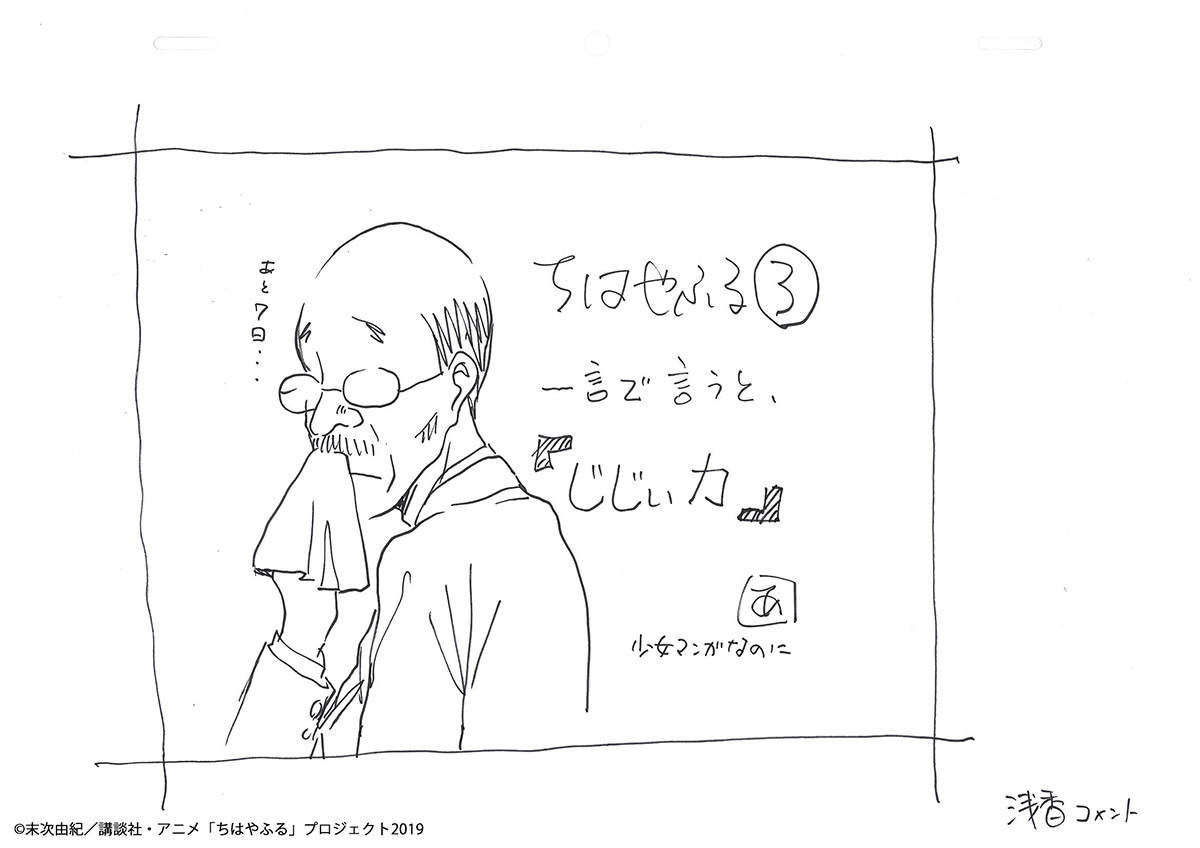 あと7日...
ちはやふる③
一言で言うと、
『じじぃ力』
あ
少女マンガなのに
浅香コメント
©末次由紀／講談社・アニメ「ちはやふる」プロジェクト2019